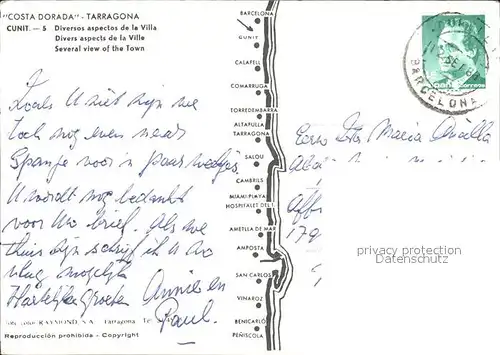 "COSTA DORADA" - TARRAGONA
CUNIT. — 5 Diversos aspectos de la Villa
Divers aspects de la Ville
Several view of the Town
Zoals U ziet zijn we
toch nog even naar
Spanje voor 'n paar weekjes.
U wordt nog bedankt
voor Uw brief. Als we
thuis zijn schrijf ik U zo
vlug mogelijk
Hartelijke groeten Annie en
Paul.
RAYMOND, S.A. Tarragona
Reproducción prohibida - Copyright
BARCELONA
CUNIT
CALAFELL
COMARRUGA
TORREDEMBARRA
ALTAFULLA
TARRAGONA
SALOU
CAMBRILS
MIAMI-PLAYA
HOSPITALET DEL I.
AMETLLA DE MAR
AMPOSTA
SAN CARLOS
VINAROZ
BENICARLO
PEÑISCOLA
BARCELONA
correos
Maria
179
privacy protection
Datenschutz